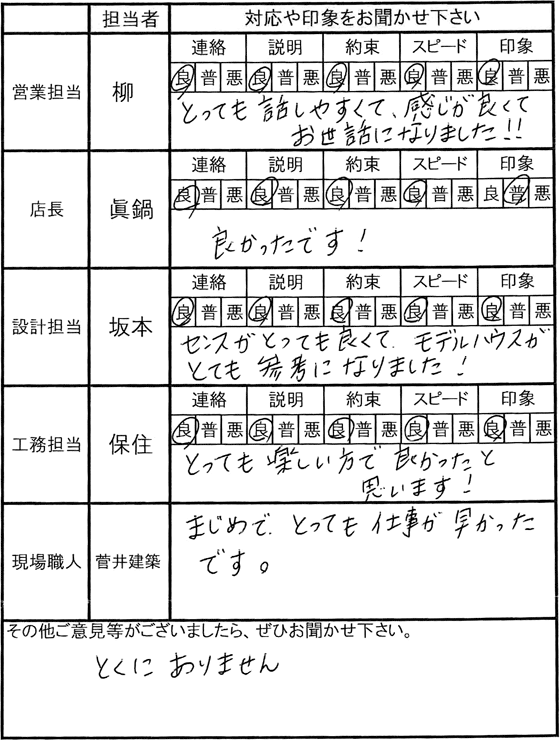 担当者 対応や印象をお聞かせ下さい
営業担当 柳
連絡 説明 約束 スピード 印象
良 普 悪 良 普 悪 良 普 悪 良 普 悪 良 普 悪
とっても 話しやすくて、感じが良くて
お世話になりました!!
店長 眞鍋
連絡 説明 約束 スピード 印象
良 普 悪 良 普 悪 良 普 悪 良 普 悪 良 普 悪
良かったです!
設計担当 坂本
連絡 説明 約束 スピード 印象
良 普 悪 良 普 悪 良 普 悪 良 普 悪 良 普 悪
センスがとっても良くて、モデルハウスが
とても 参考に なりました!
工務担当 保住
連絡 説明 約束 スピード 印象
良 普 悪 良 普 悪 良 普 悪 良 普 悪 良 普 悪
とっても 楽しい方で 良かったと
思います!
現場職人 菅井建築
まじめで、とっても 仕事が 早かった
です。
その他ご意見等がございましたら、ぜひお聞かせ下さい。
とくに ありません